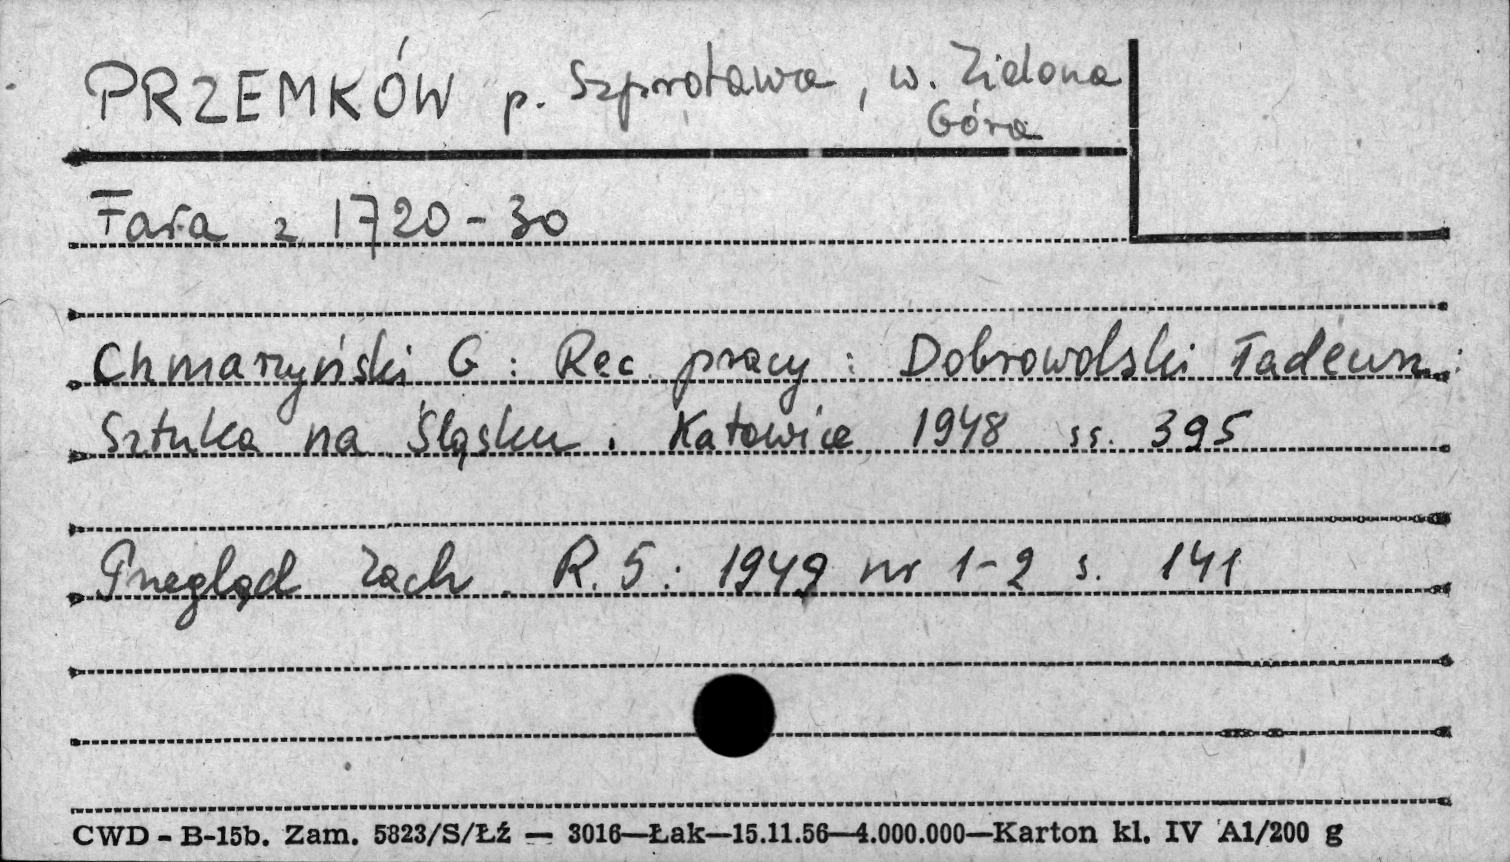 PRZEMKÓW p. Szprotawa, w. Zielona
Góra
Fara z 1720-30
Chmarzyński G : Rec. pracy : Dobrowolski Tadeusz :
Sztuka na Śląsku. Katowice 1948 ss. 395
Przegląd Zach. R. 5 : 1949 nr 1-2 s. 141
CWD - B-15b. Zam. 5823/S/Łź — 3016—Łak—15.11.56—4.000.000—Karton kl. IV A1/200 g